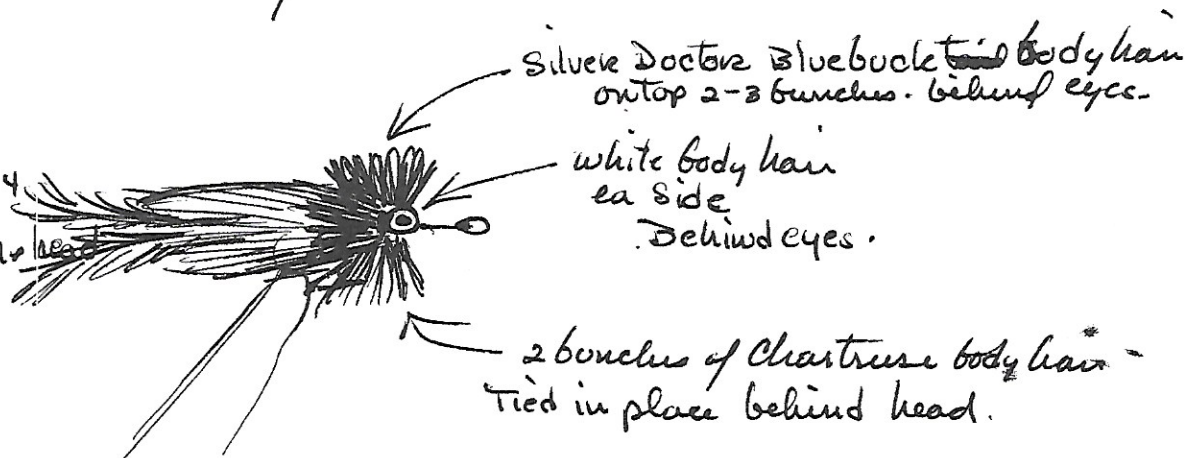 Silver Doctor Bluebuck tail body hair
on top 2-3 bunches. behind eyes-
white body hair
ea Side
Behind eyes.
4
head
2 bunches of Chartruse body hair -
Tied in place behind head.